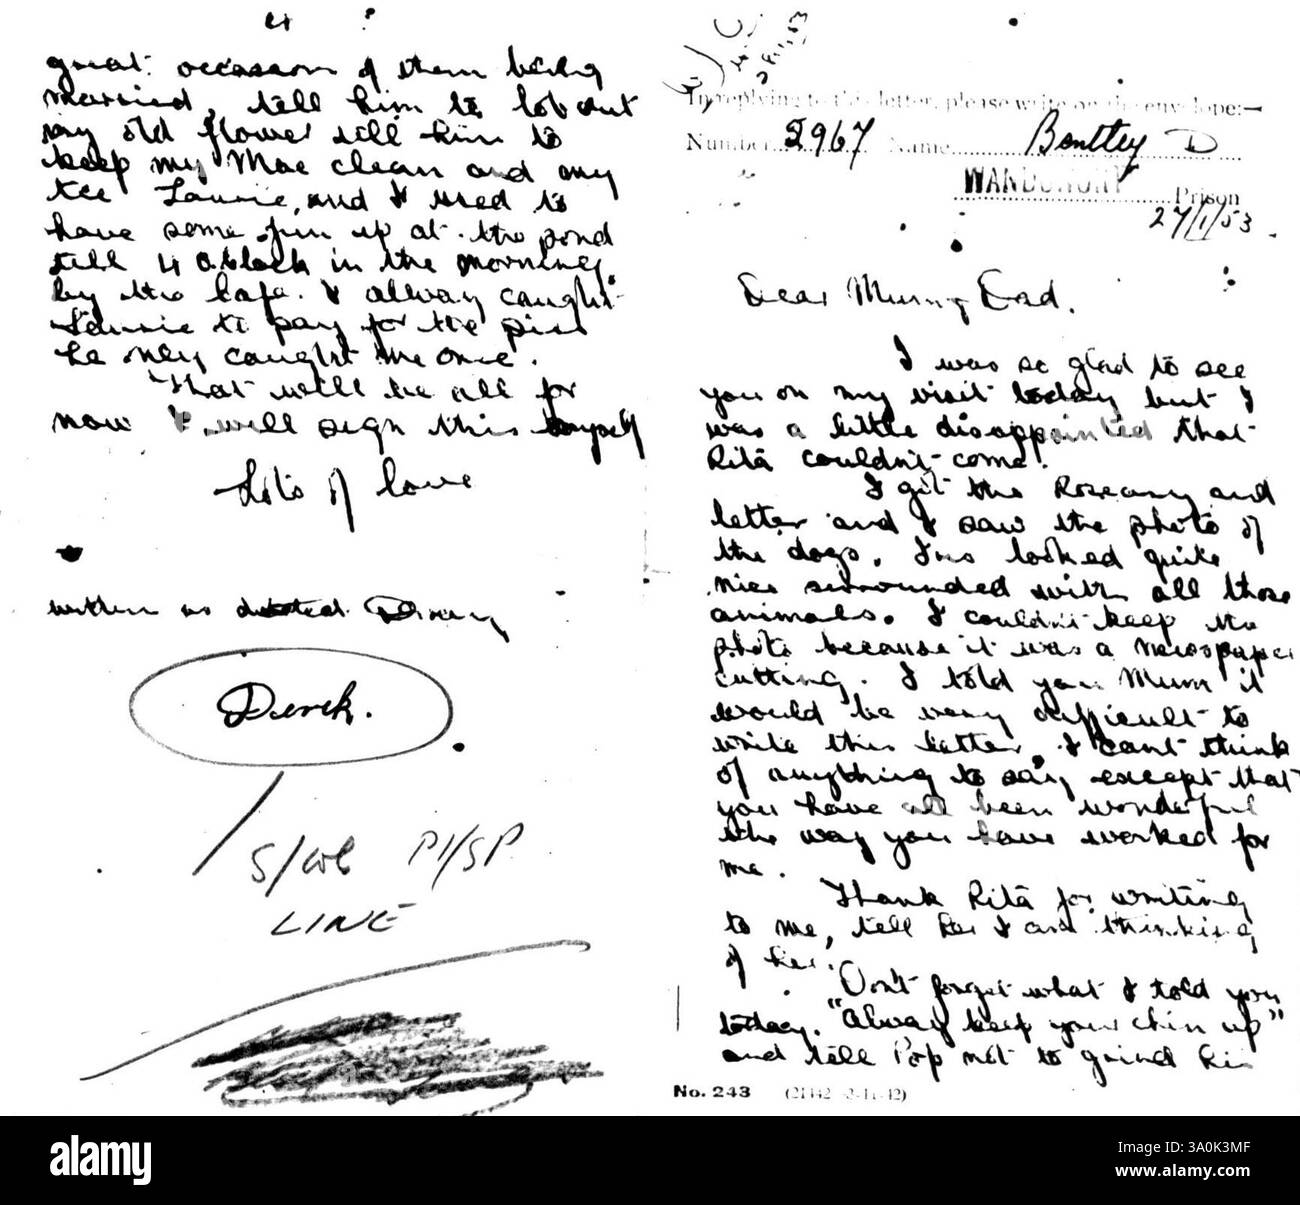 4
great occasion of them being
married, tell him to lob out
my old flower tell him to
keep my Mac clean and my
tee Laurie, and I used to
have some fun up at the pond
till 4 o'clock in the morning,
by the Cafe. I alway caught
Laurie to pay for the pies
he only caught me once.
That will be all for
now I will sign this myself
Lots of Love
written as
Derek.
LINE
In replying to this letter, please write on the envelope:—
Number 2967 Name Bentley D
WANDSWORTH Prison
27/1/53
Dear Mum, Dad.
I was so glad to see
you on my visit today but I
was a little disappointed that
Rita couldn't come.
I got the Roseary and
letter and I saw the photo of
the dogs. looked quite
nice surrounded with all those
animals. I couldn't keep the
photo because it was a newspaper
cutting. I told you Mum it
would be very difficult to
write this letter, I cant think
of anything to say except that
you have all been wonderful
the way you have worked for
me.
Thank Rita for writing
to me, tell her I am thinking
of her.
Don't forget what I told you
today. "Alway keep your chin up"
and tell Pop not to grind his
No. 243 (21442 -2-11-42)
alamy
Image ID: 3A0K3MF
www.alamy.com